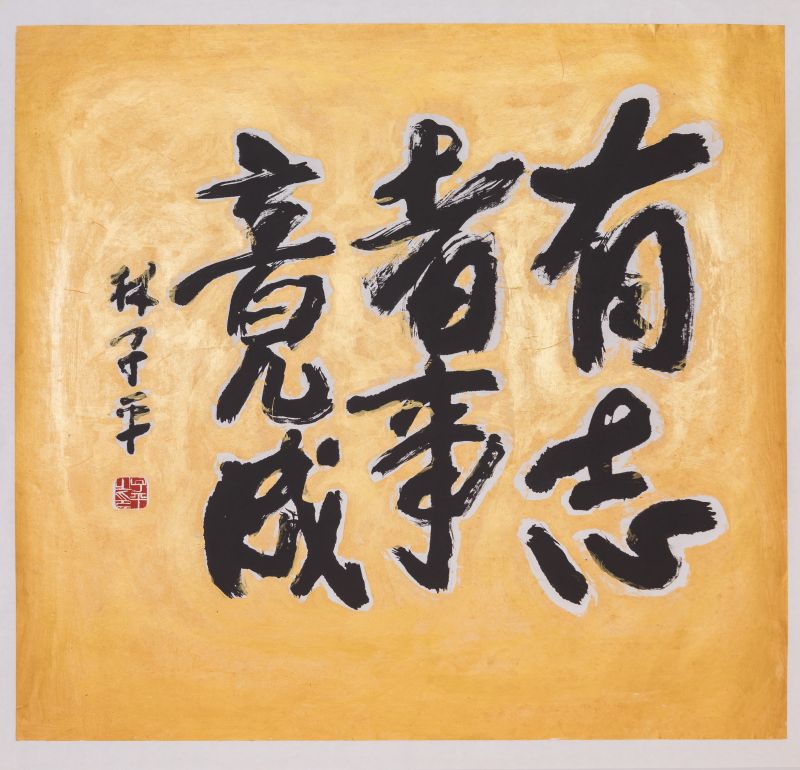 有志
者事
竟成
林子平
子平